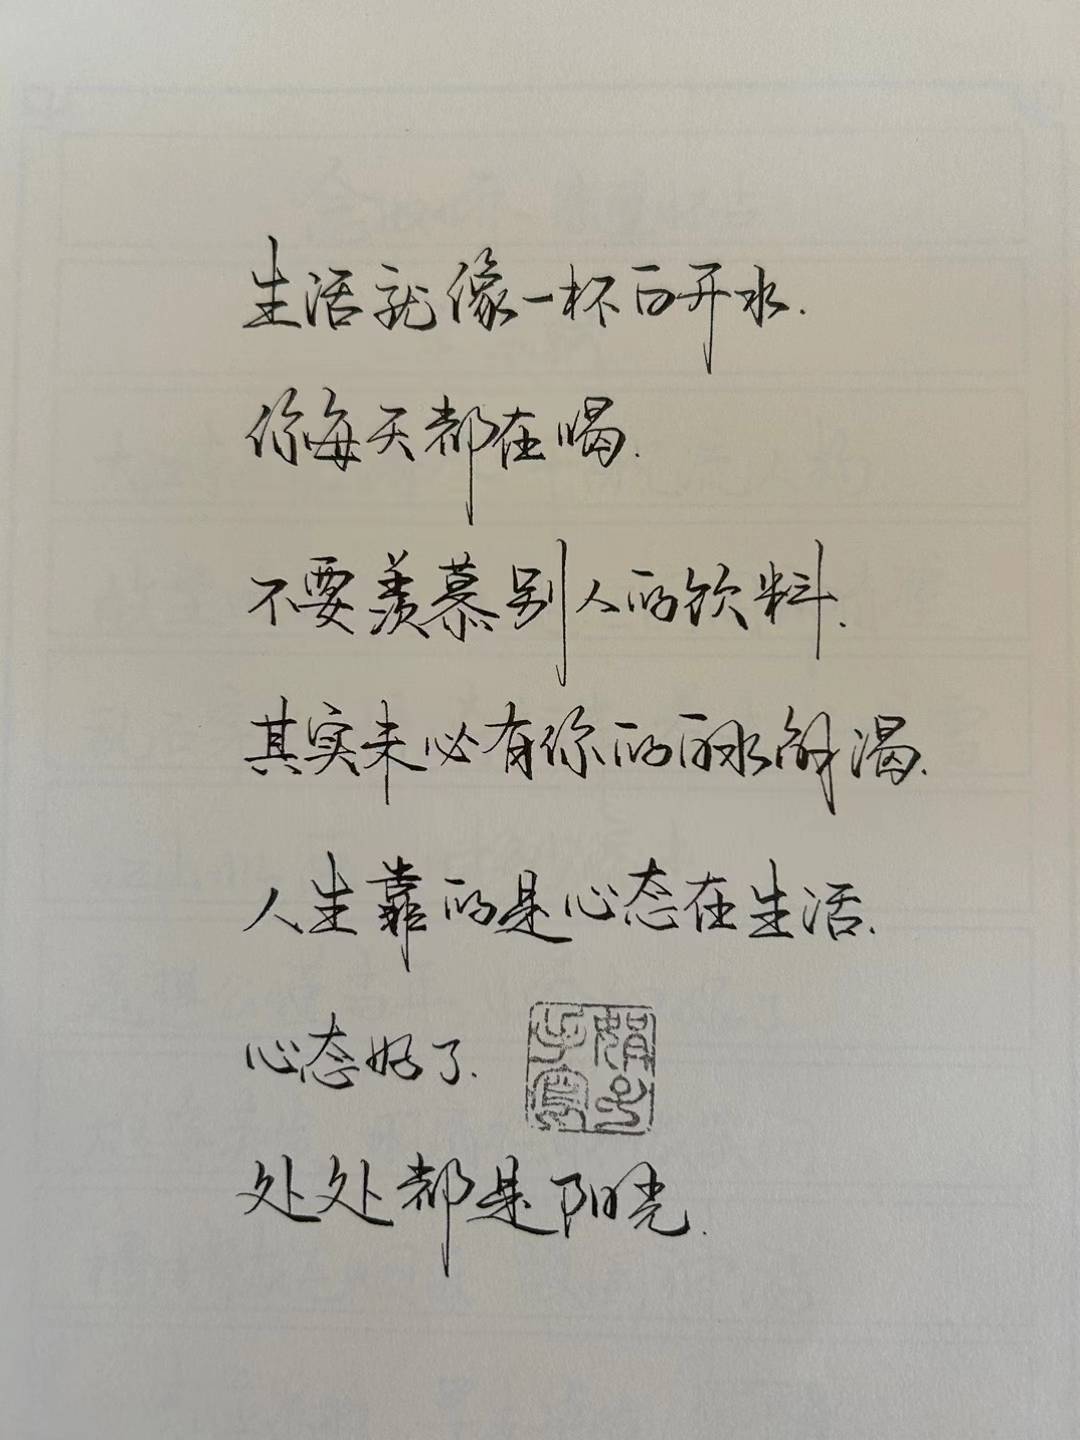 生活就像一杯白开水.
你每天都在喝.
不要羡慕别人的饮料.
其实未必有你的白水解渴.
人生靠的是心态在生活.
心态好了.
处处都是阳光.